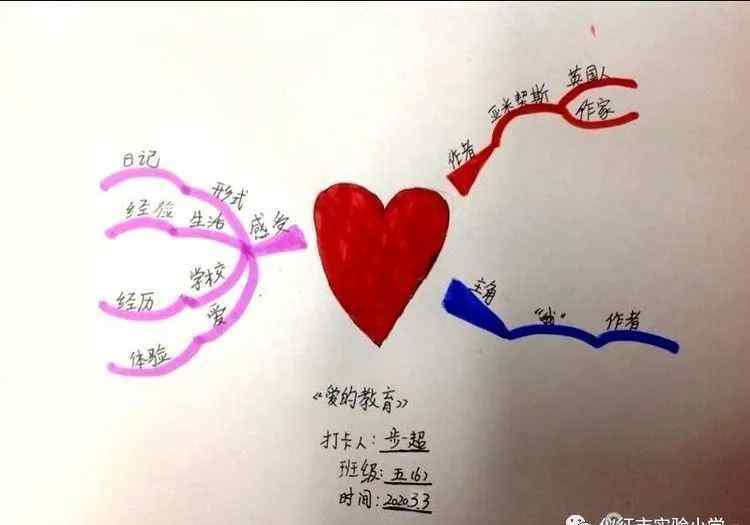 英国人
作家
亚米契斯
作者
主角
“我”
作者
感受
形式
日记
生活
经验
学校
经历
爱
体验
《爱的教育》
打卡人：步一超
班级：五(6)
时间：2020.3.3
红吉实验小学